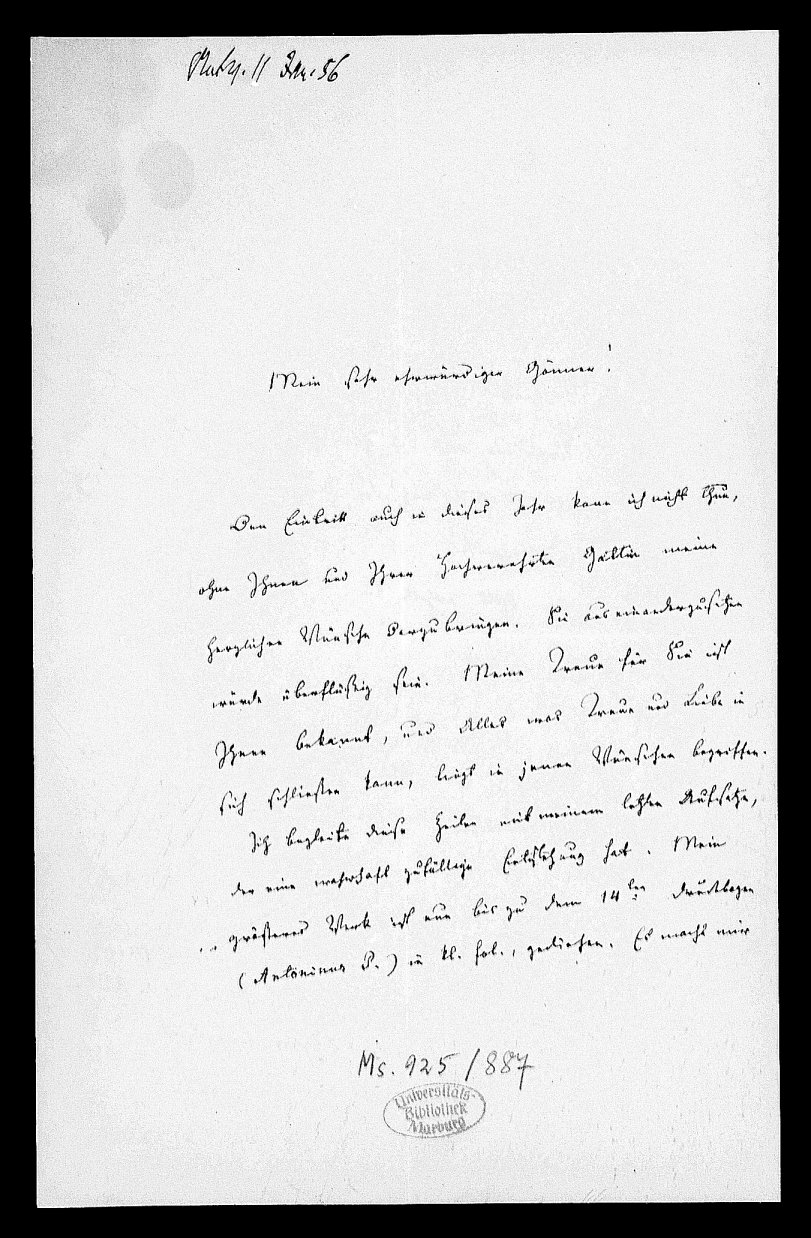 11 Jan. 56
Mein sehr ehrwürdiger Gönner!
Den Eintritt auch in dieses Jahr kann ich nicht thun,
ohne Ihnen und Ihrer Hochverehrten Gattin meine
herzlichen Wünsche darzubringen. Sie auseinanderzusetzen
würde überflüßig sein. Meine Treue für Sie ist
Ihnen bekannt, und Alles was Treue und Liebe in
sich schließen kann, liegt in jenen Wünschen begriffen.
Ich begleite diese Zeilen mit meinem letzten Aufsatze,
der eine wahrhaft zufällige Entstehung hat. Mein
größeres Werk ist nun bis zu dem 14ten Druckbogen
(Antoninus P.) in kl. fol., gediehen. Es macht mir
Ms. 925/887
Universitäts-
Bibliothek
Marburg